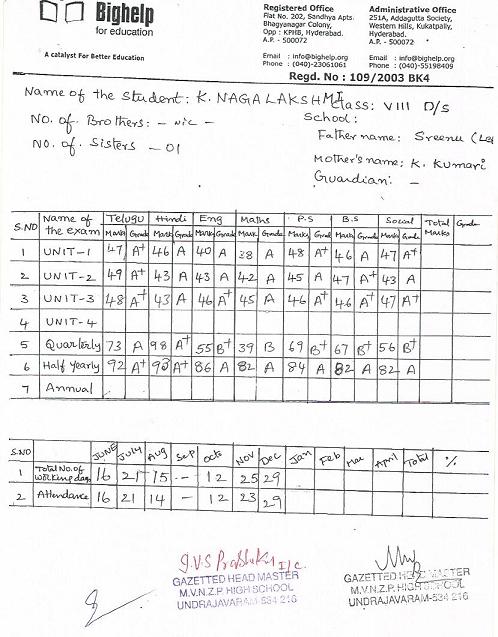 Bighelp
for education
A catalyst For Better Education
Registered Office
Flat No. 202, Sandhya Apts
Bhagyanagar Colony,
Opp : KPHB, Hyderabad.
A.P. - 500072
Email : info@bighelp.org
Phone : (040)-23061061
Administrative Office
251A, Addagutta Society,
Western Hills, Kukatpally,
Hyderabad.
A.P. - 500072
Email : info@bighelp.org
Phone : (040)-55198409
Regd. No : 109/2003 BK4
Name of the Student: K. NAGALAKSHMI Class: VIII D/S
School:
NO. of. Brothers: - Nil -
Father name: Sreenu
NO. of. Sisters - 01
Mother's name: K. Kumari
Guardian: -
S.NO Name of the exam Telugu Hindi Eng Maths P.S B.S Social Total Marks Grade
Mark Grade Mark Grade Mark Grade Marks Grade Marks Grade Mark Grade Mark Grade
1 UNIT-1 47 A+ 46 A 40 A 38 A 48 A+ 46 A 47 A+
2 UNIT-2 49 A+ 43 A 43 A 42 A 45 A 47 A+ 43 A
3 UNIT-3 48 A+ 43 A 46 A+ 45 A 46 A+ 46 A+ 47 A+
4 UNIT-4
5 Quarterly 73 A 98 A+ 55 B+ 39 B 69 B+ 67 B+ 56 B+
6 Half Yearly 92 A+ 93 A+ 86 A 82 A 84 A 82 A 82 A
7 Annual
S.NO JUNE JULY Aug Sep Octo NOV Dec Jan Feb Mar April Total %
1 Total No. of Working days 16 21 15 - 12 25 29
2 Attendance 16 21 14 - 12 23 29
g.V.S Prabhakar I/c.
GAZETTED HEAD MASTER
M.V.N.Z.P. HIGH SCHOOL
UNDRAJAVARAM-534 216
GAZETTED HEAD MASTER
M.V.N.Z.P. HIGH SCHOOL
UNDRAJAVARAM-534 216